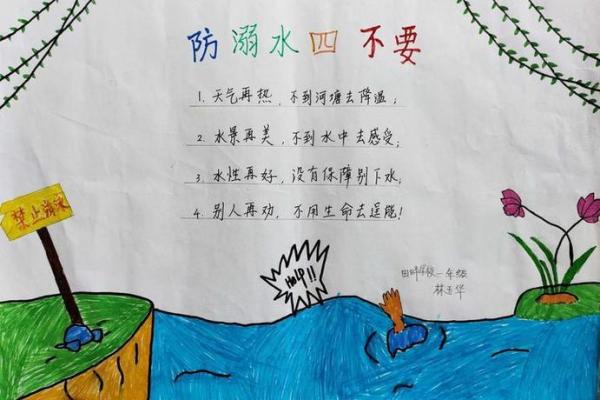 防溺水四不要
1. 天气再热，不到河塘去降温；
2. 水景再美，不到水中去感受；
3. 水性再好，没有保障别下水；
4. 别人再劝，不用生命去逞能！
禁止游泳
Help!!
学校一年级
林玉华